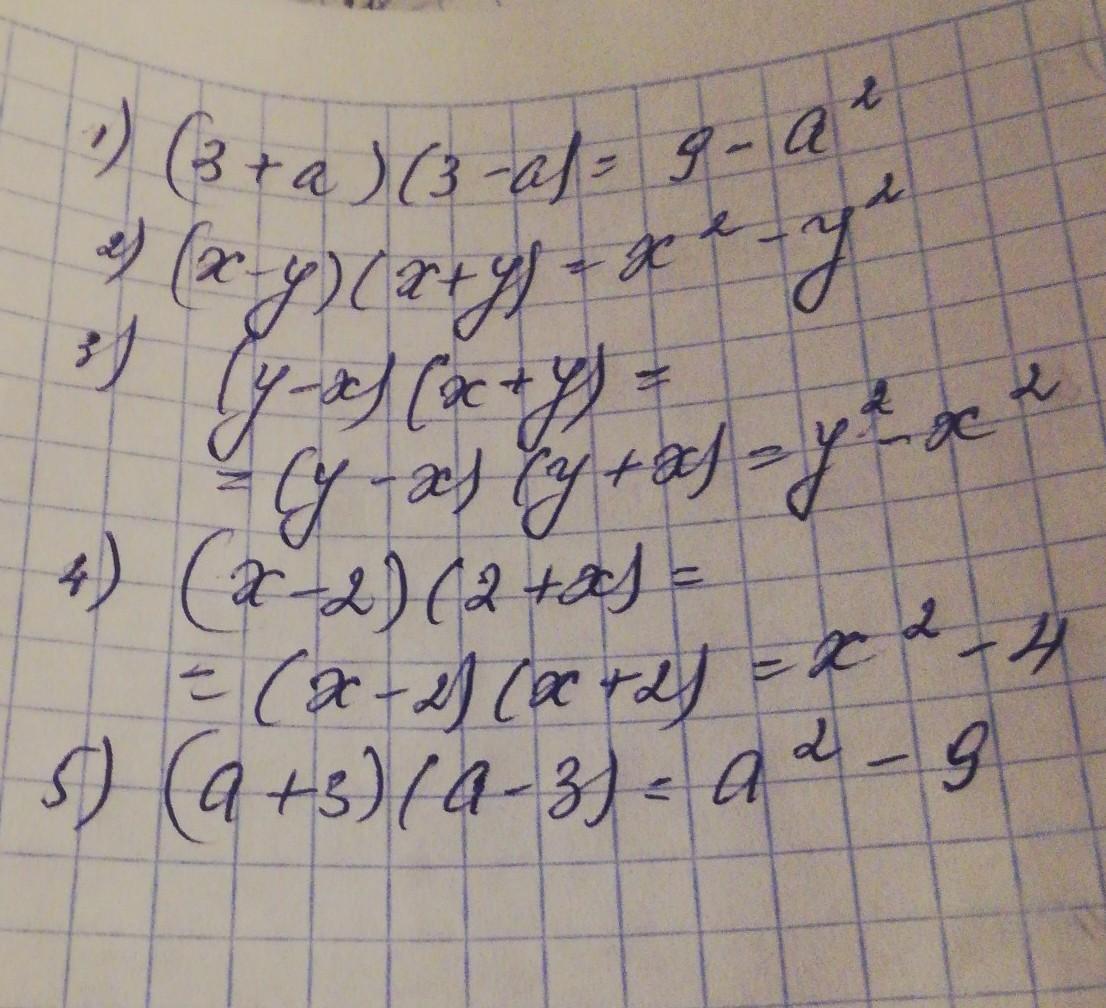 1) (3+a)(3-a)= 9-a²
2) (x-y)(x+y)=x²-y²
3) (y-x)(x+y)=
=(y-x)(y+x)=y²-x²
4) (x-2)(2+x)=
=(x-2)(x+2)=x²-4
5) (a+3)(a-3)=a²-9